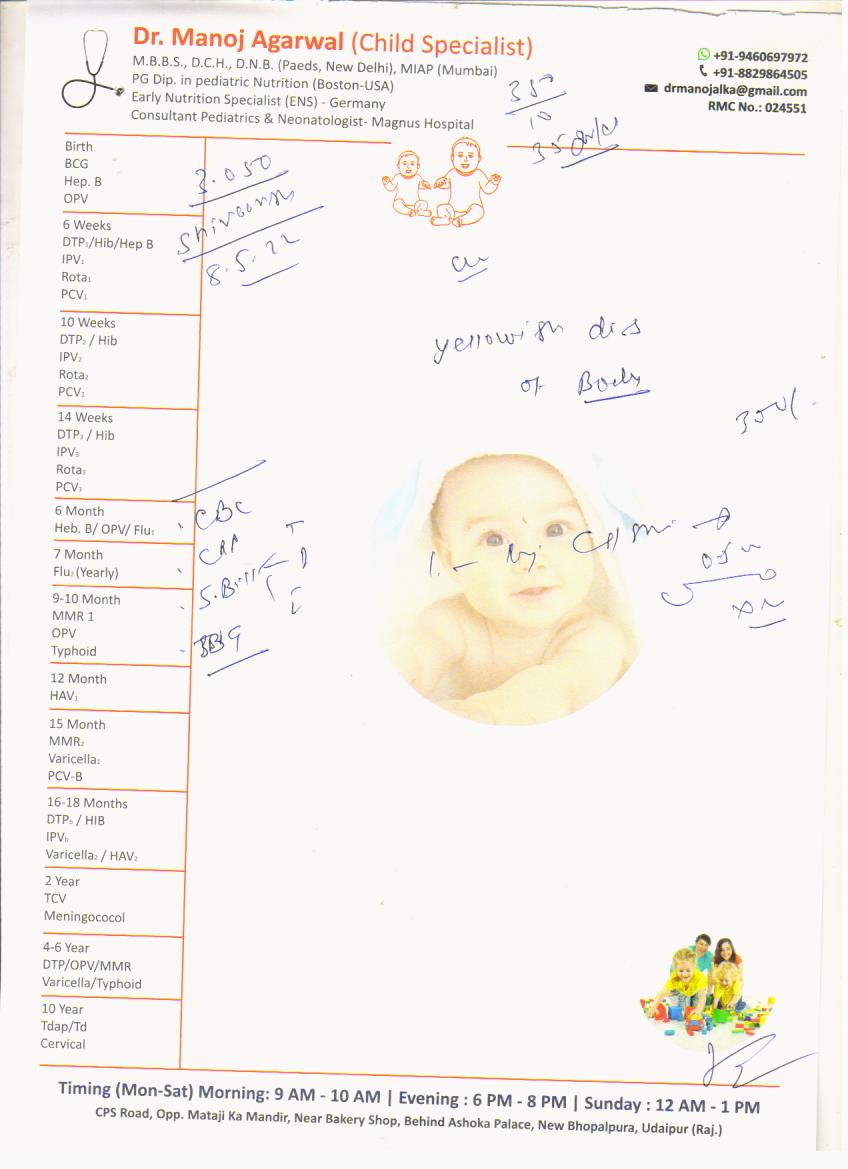 Dr. Manoj Agarwal (Child Specialist)
M.B.B.S., D.C.H., D.N.B. (Paeds, New Delhi), MIAP (Mumbai)
PG Dip. in pediatric Nutrition (Boston-USA)
Early Nutrition Specialist (ENS) - Germany
Consultant Pediatrics & Neonatologist- Magnus Hospital
+91-9460697972
+91-8829864505
drmanojalka@gmail.com
RMC No.: 024551
350
10
35
Birth
BCG
Hep. B
OPV
3.050
8.5.22
6 Weeks
DTP₁/Hib/Hep B
IPV₁
Rota₁
PCV₁
10 Weeks
DTP₂ / Hib
IPV₂
Rota₂
PCV₂
yellowish dis
of Body
14 Weeks
DTP₃ / Hib
IPV₃
Rota₃
PCV₃
350/-
6 Month
Heb. B/ OPV/ Flu₁
CBC
7 Month
Flu₂ (Yearly)
S.Bill
T
D
I
9-10 Month
MMR 1
OPV
Typhoid
12 Month
HAV₁
15 Month
MMR₂
Varicella₁
PCV-B
16-18 Months
DTPᵇ / HIB
IPVᵇ
Varicella₂ / HAV₂
2 Year
TCV
Meningococol
4-6 Year
DTP/OPV/MMR
Varicella/Typhoid
10 Year
Tdap/Td
Cervical
Timing (Mon-Sat) Morning: 9 AM - 10 AM | Evening : 6 PM - 8 PM | Sunday : 12 AM - 1 PM
CPS Road, Opp. Mataji Ka Mandir, Near Bakery Shop, Behind Ashoka Palace, New Bhopalpura, Udaipur (Raj.)